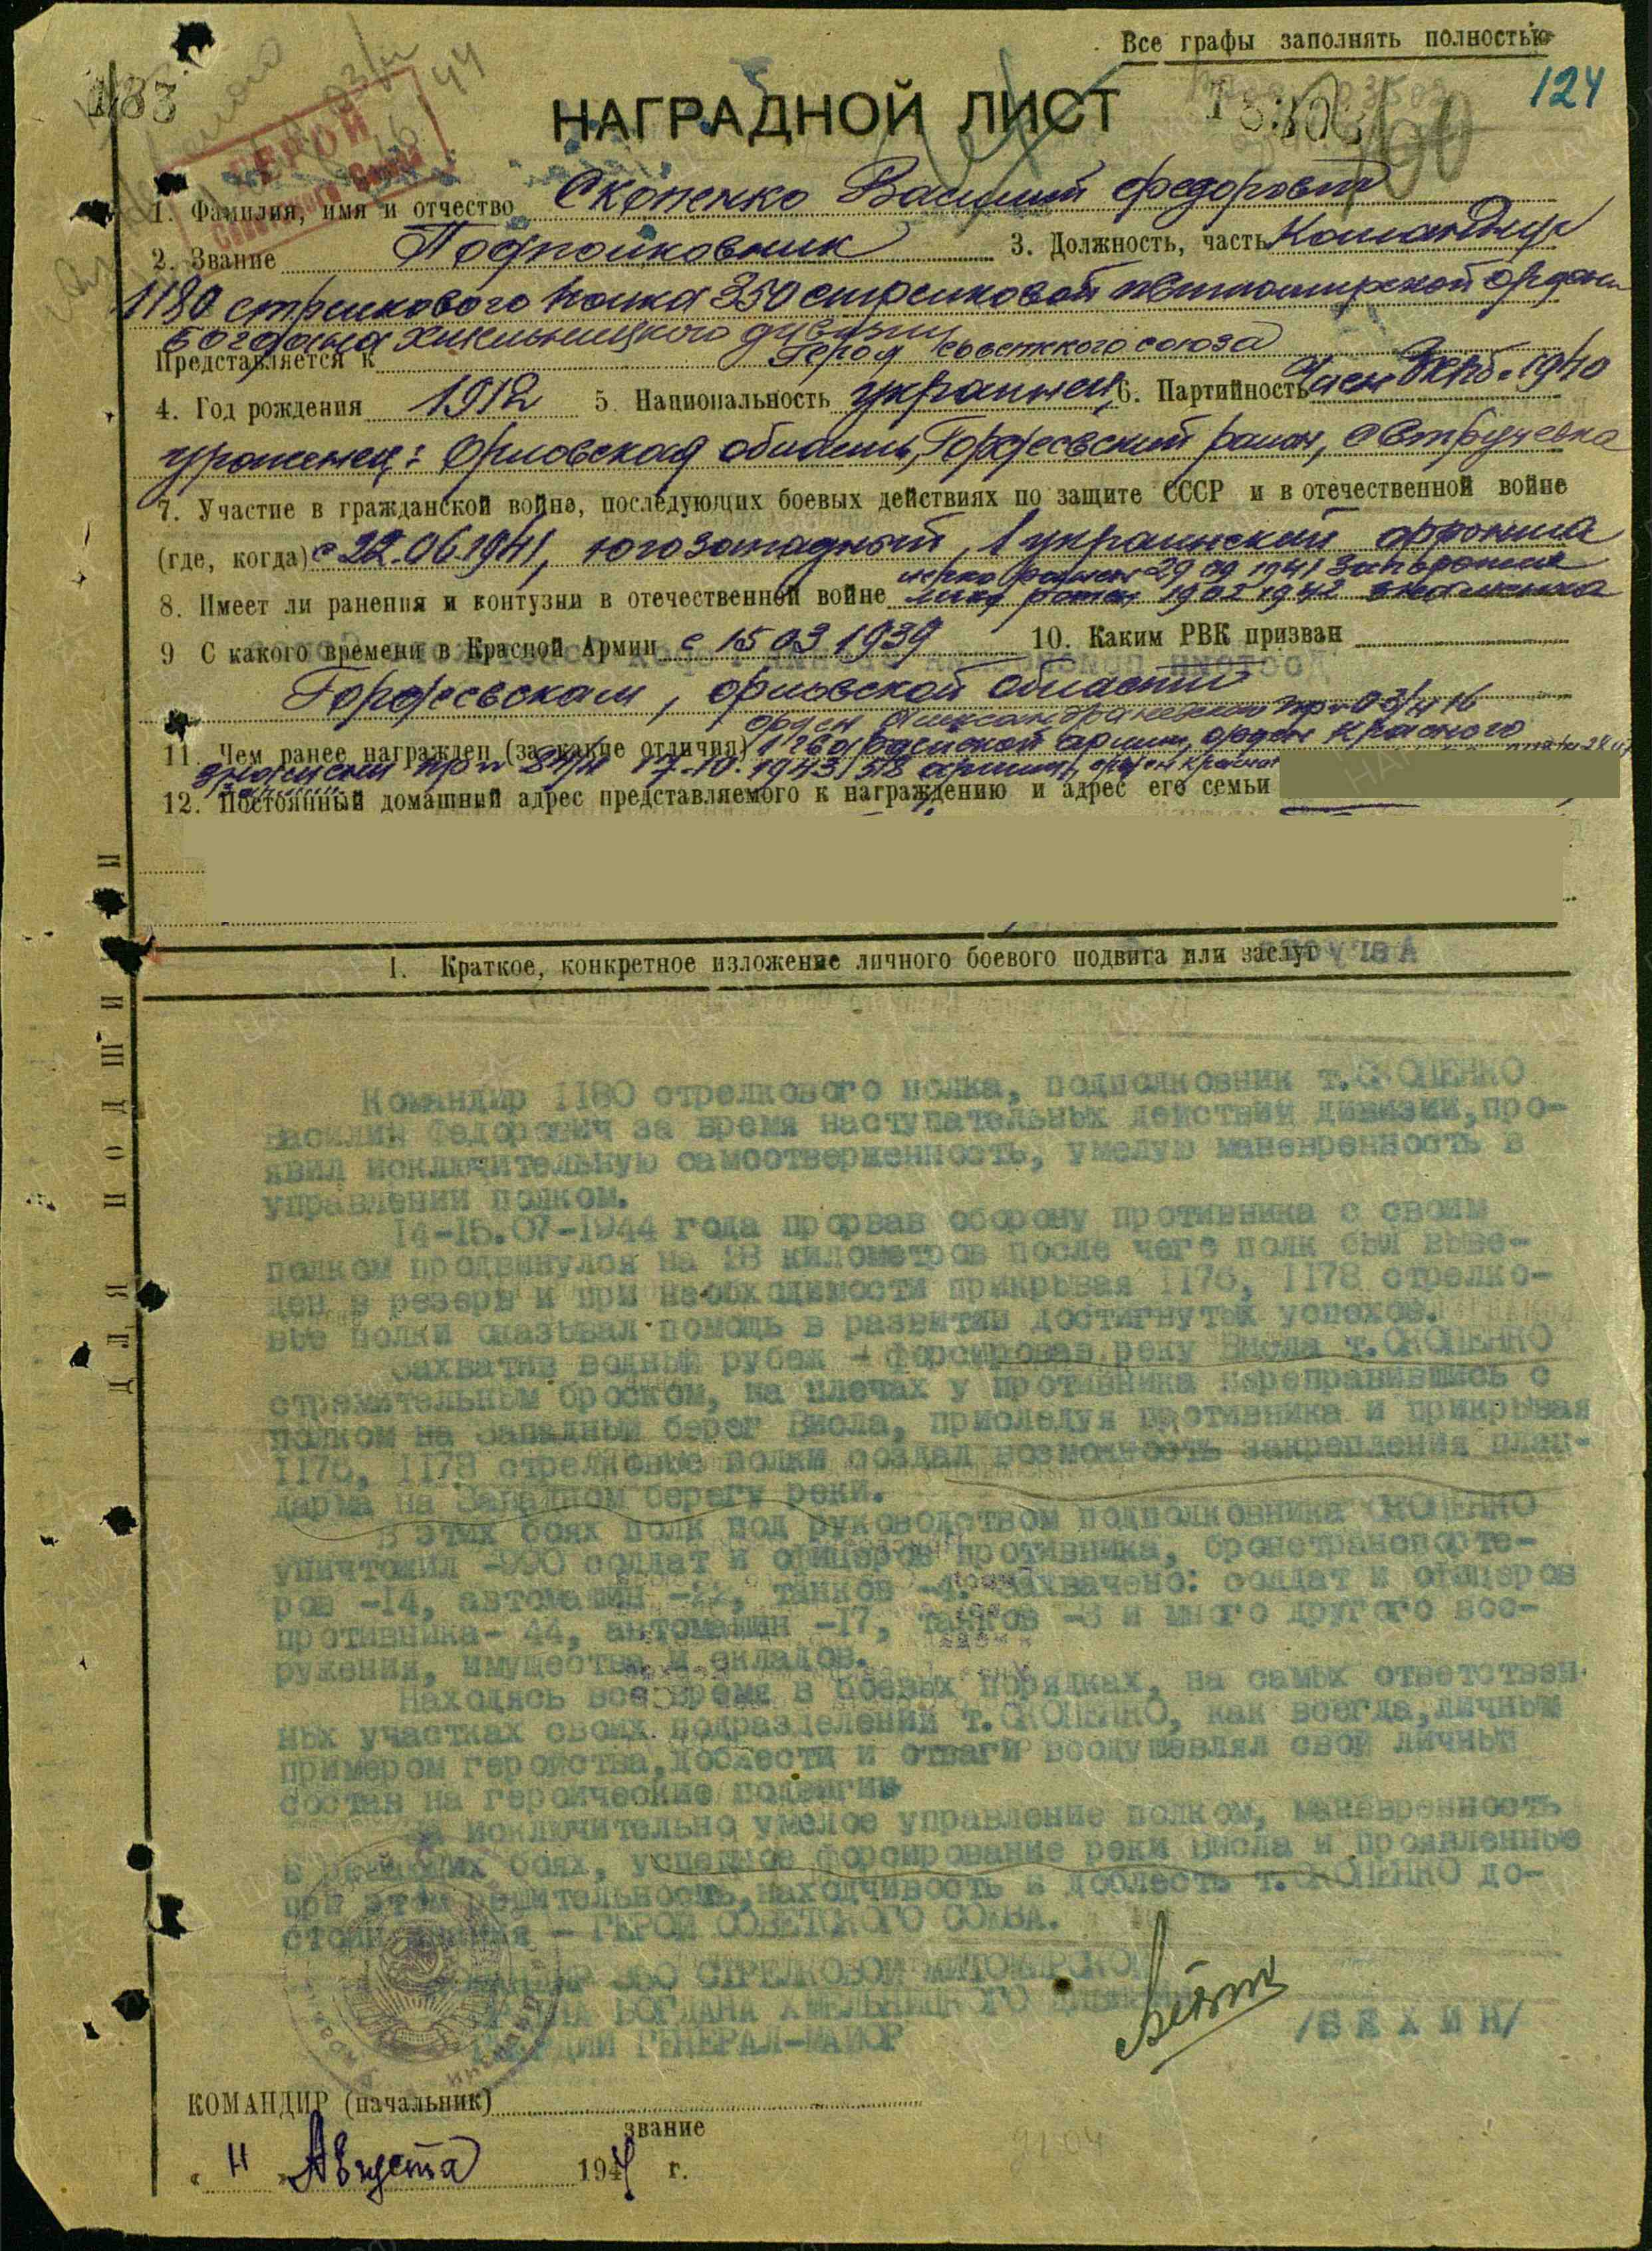 Все графы заполнять полностью
124
НАГРАДНОЙ ЛИСТ
ГЕРОЙ
Советского Союза
1. Фамилия, имя и отчество Скопенко Василий Федорович
2. Звание Подполковник 3. Должность, часть Командир
1180 стрелкового полка 350 стрелковой житомирской ордена
Богдана Хмельницкого дивизии
Представляется к Герой советского союза
4. Год рождения 1912 5. Национальность украинец 6. Партийность Член ВКПб с 1940
уроженец: Орловская область, Гордеевский район, с Стругевка
7. Участие в гражданской войне, последующих боевых действиях по защите СССР и в отечественной войне
(где, когда) с 22.06.1941, югозападный, 1 украинский фронта
8. Имеет ли ранения и контузии в отечественной войне легко ранен 29 09 1941
легко ранен 1942
9 С какого времени в Красной Армии с 15 03 1939 10. Каким РВК призван
Гордеевским, орловской области
орден Александра невского пр-
11. Чем ранее награжден (за какие отличия) гвардейской армии, орден Красного
знамени пр 17.10.1943 армии, орден красного
12. Постоянный домашний адрес представляемого к награждению и адрес его семьи
I. Краткое, конкретное изложение личного боевого подвига или заслуг
Командир 1180 стрелкового полка, подполковник т.СКОПЕНКО
Василий Федорович за время наступательных действий дивизии,про-
явил исключительную самоотверженность, умелую маневренность в
управлении полком.
14-15.07-1944 года прорвав оборону противника с своим
полком продвинулся на 28 километров после чего полк был выве-
ден в резерв и при необходимости прикрывая 1176, 1178 стрелко-
вые полки оказывал помощь в развитии достигнутых успехов.
Захватив водный рубеж - форсировав реку Висла т.СКОПЕНКО
стремительным броском, на плечах у противника переправившись с
полком на Западный берег Висла, приследуя противника и прикрывая
1176, 1178 стрелковые полки создал возможность закрепления плац-
дарма на Западном берегу реки.
В этих боях полк под руководством подполковника СКОПЕНКО
уничтожил -990 солдат и офицеров противника, бронетранспорте-
ров -14, автомашин -22, танков -4. Захвачено: солдат и офицеров
противника- 44, автомашин -17, танков -3 и много другого воо-
ружения, имущества и складов.
Находясь все время в боевых порядках, на самых ответствен-
ных участках своих подразделений т.СКОПЕНКО, как всегда,личным
примером геройства,доблести и отваги воодушевлял свой личный
состав на героические подвиги.
За исключительно умелое управление полком, маневренность
в решающих боях, успешное форсирование реки Висла и проявленные
при этом решительность,находчивость и доблесть т.СКОПЕНКО до-
стоин звания - ГЕРОЙ СОВЕТСКОГО СОЮЗА.
КОМАНДИР 350 СТРЕЛКОВОЙ ЖИТОМИРСКОЙ
ОРДЕНА БОГДАНА ХМЕЛЬНИЦКОГО ДИВИЗИИ
ГВАРДИИ ГЕНЕРАЛ-МАЙОР /ВЕХИН/
КОМАНДИР (начальник)
звание
" 11 " Августа 1944 г.
ДЛЯ ПОДШИВКИ